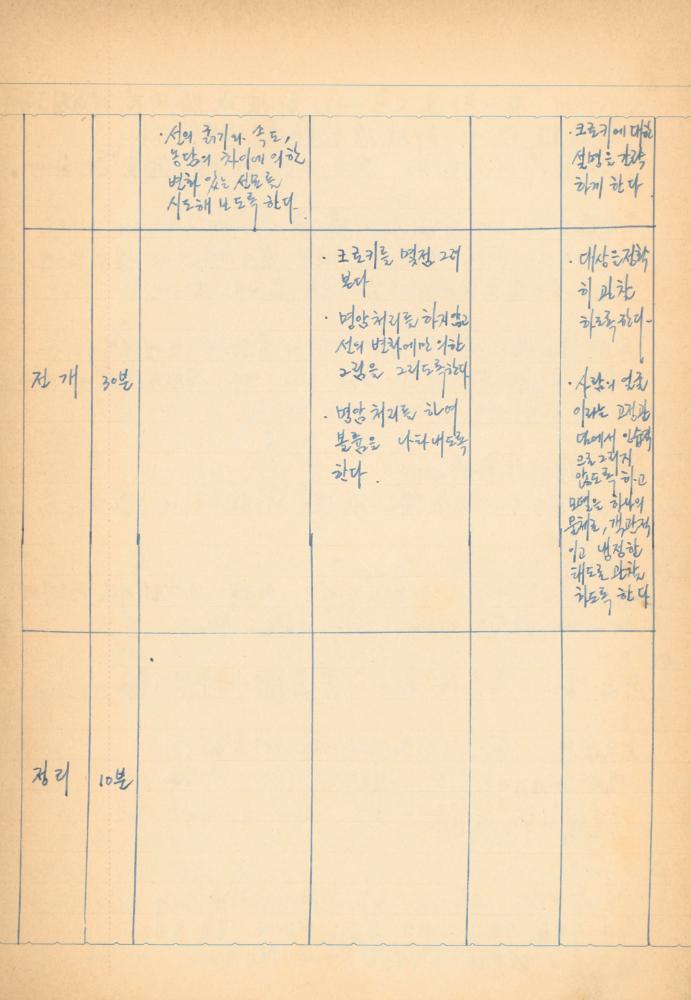 · 선의 굵기와 속도,
농담의 차이에 의한
변화 있는 선묘를
시도해 보도록 한다.
· 크로키에 대한
설명을 간략
하게 한다
전개
30분
· 크로키를 몇점 그려
본다
· 명암처리를 하지않고
선의 변화에만 의한
그림을 그리도록한다
· 명암처리를 하여
볼륨을 나타내도록
한다.
· 대상을 정확
히 관찰
하도록 한다.
· 사람의 얼굴
이라는 고정관
념에서 인습적
으로 그리지
않도록 하고
모델을 하나의
물체로, 객관적
이고 냉정한
태도로 관찰
하도록 한다
정리
10분